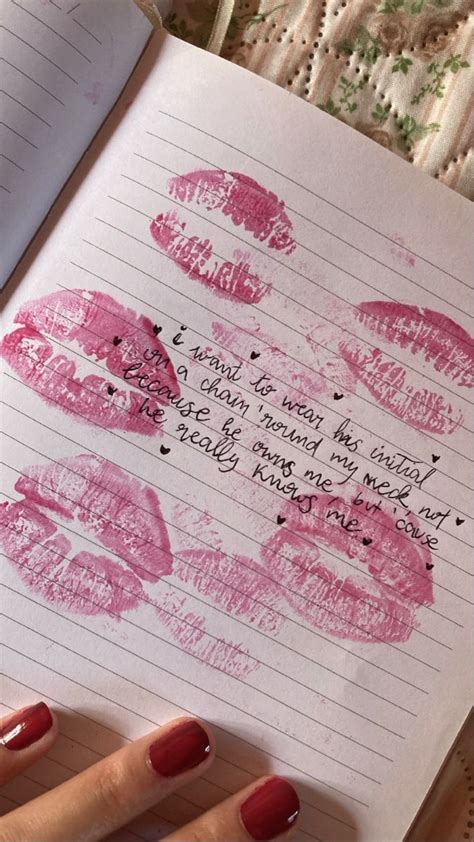 i want to wear his initial
on a chain 'round my neck, not
because he owns me but 'cause
he really knows me